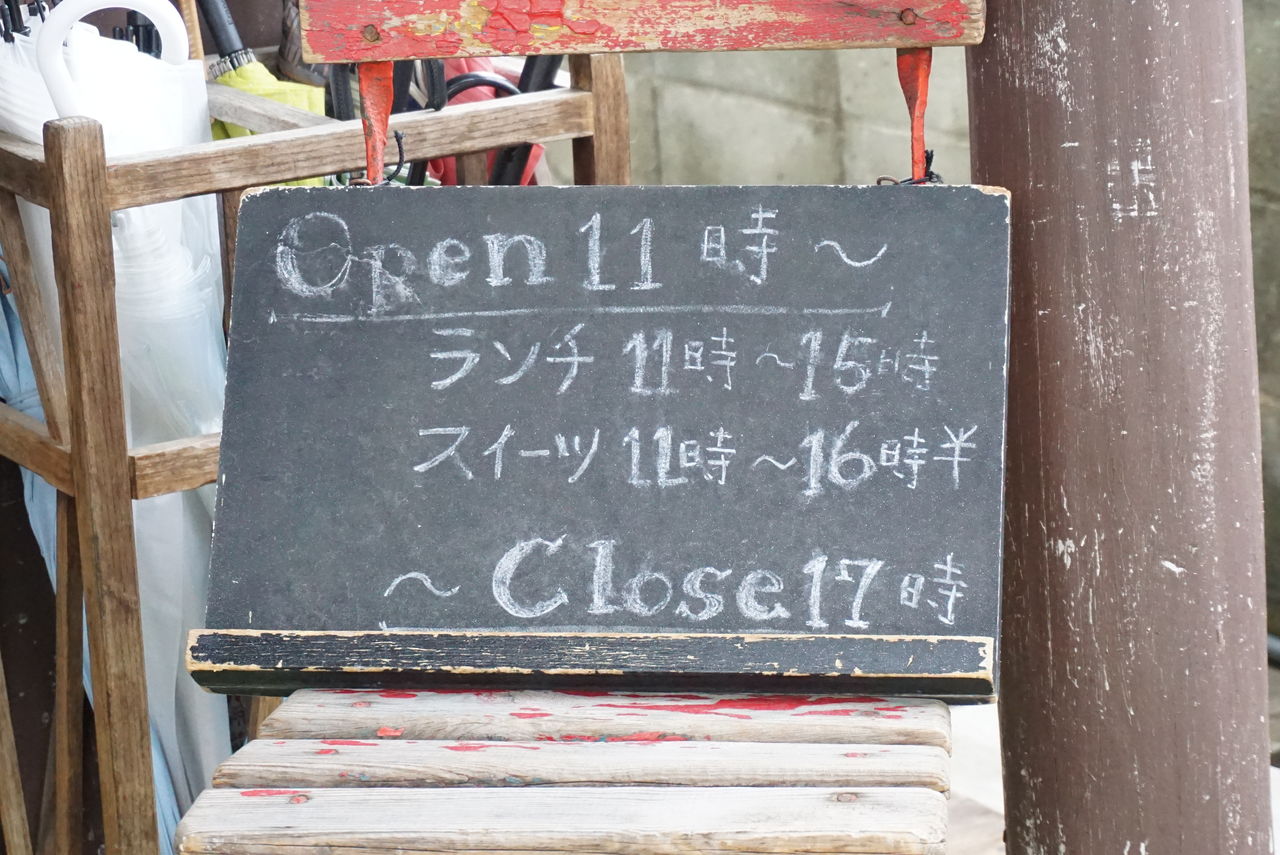 Open 11時〜
ランチ 11時〜15時
スイーツ 11時〜16時半
〜Close 17時